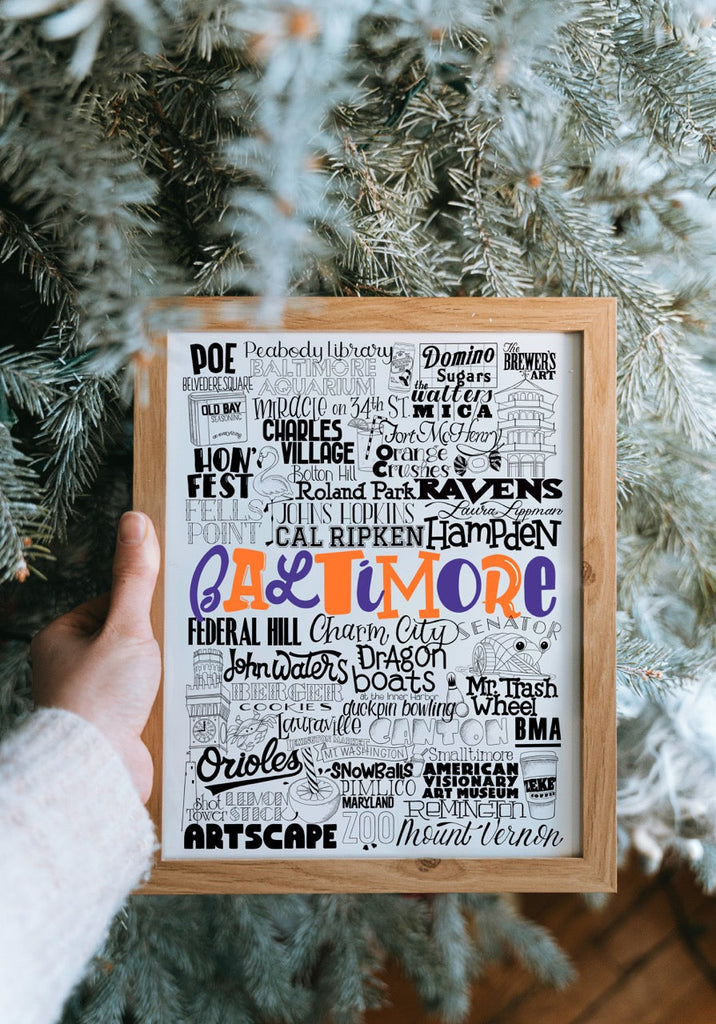 POE
Peabody Library
Domino
Sugars
The
BREWER'S
ART
BELVEDERE SQUARE
BALTIMORE
AQUARIUM
the
walters
MICA
OLD BAY
SEASONING
miracle on 34th ST.
CHARLES
VILLAGE
Fort McHenry
Orange
Crushes
HON'
FEST
Bolton Hill
Roland Park
RAVENS
FELLS
POINT
JOHNS HOPKINS
Laura Lippman
CAL RIPKEN
HAMPDEN
BALTIMORE
FEDERAL HILL
Charm City
SENATOR
John Waters
DRAGON
boats
at the Inner Harbor
BERGER
COOKIES
duckpin bowling
Mr. Trash
Wheel
Lauraville
CANTON
BMA
LEXINGTON MARKET
MT WASHINGTON
Orioles
Smalltimore
SNOWBALLS
AMERICAN
VISIONARY
ART MUSEUM
PIMLICO
Shot
Tower
LEMON
STICK
MARYLAND
ZOO
REMINGTON
ZEKE'S
COFFEE
ARTSCAPE
Mount Vernon